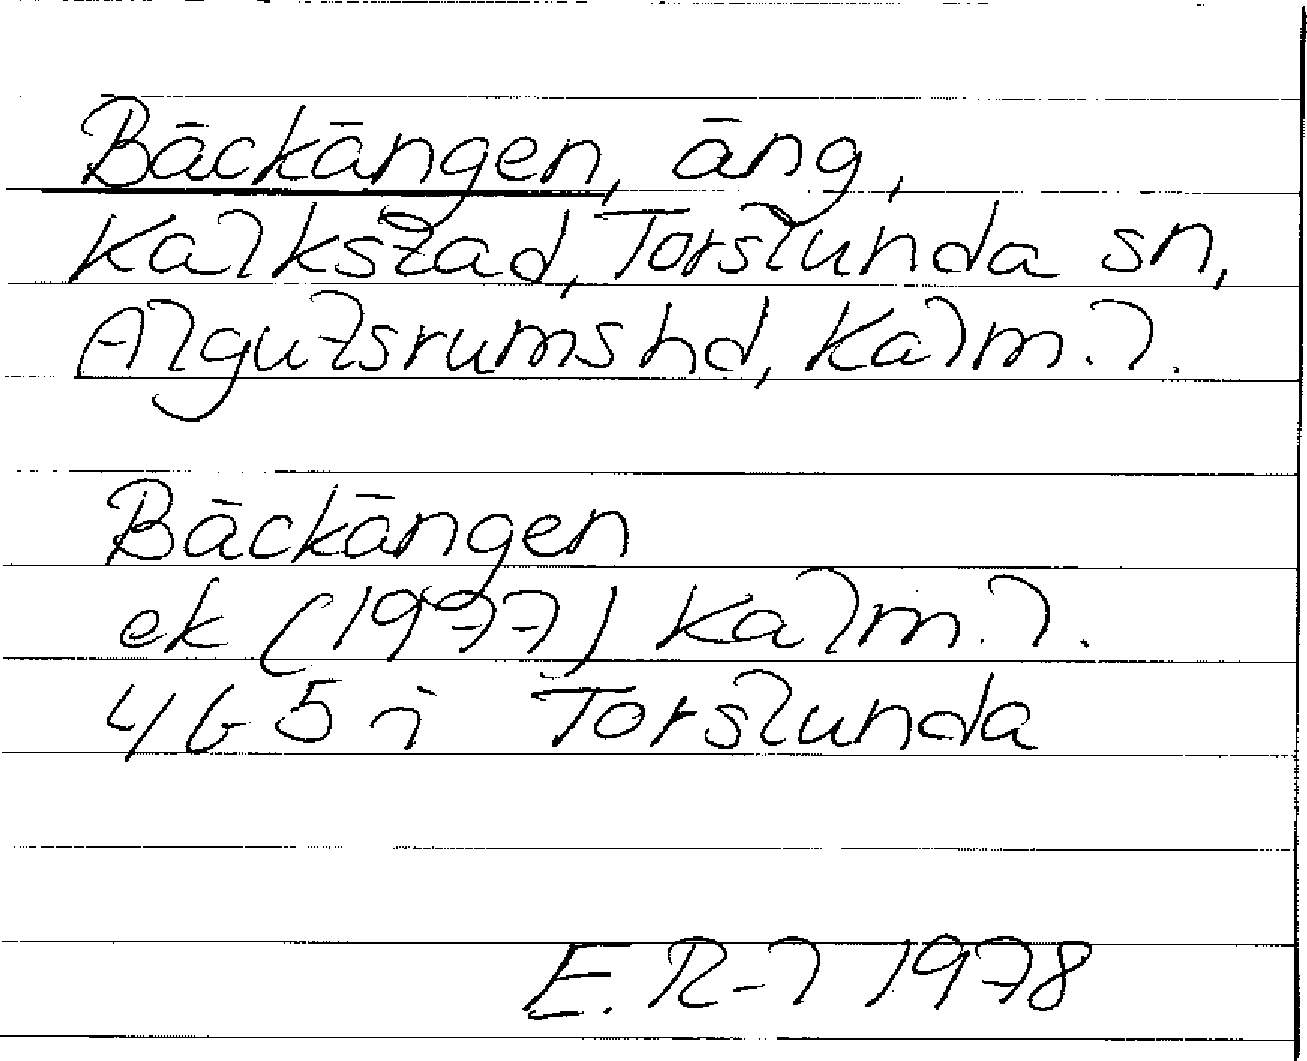 Bäckängen, äng,
Kalkstad, Torslunda sn,
Algutsrums hd, Kalm. l.
Bäckängen
ek (1977) Kalm. l.
4G5i Torslunda
E. R-l 1978